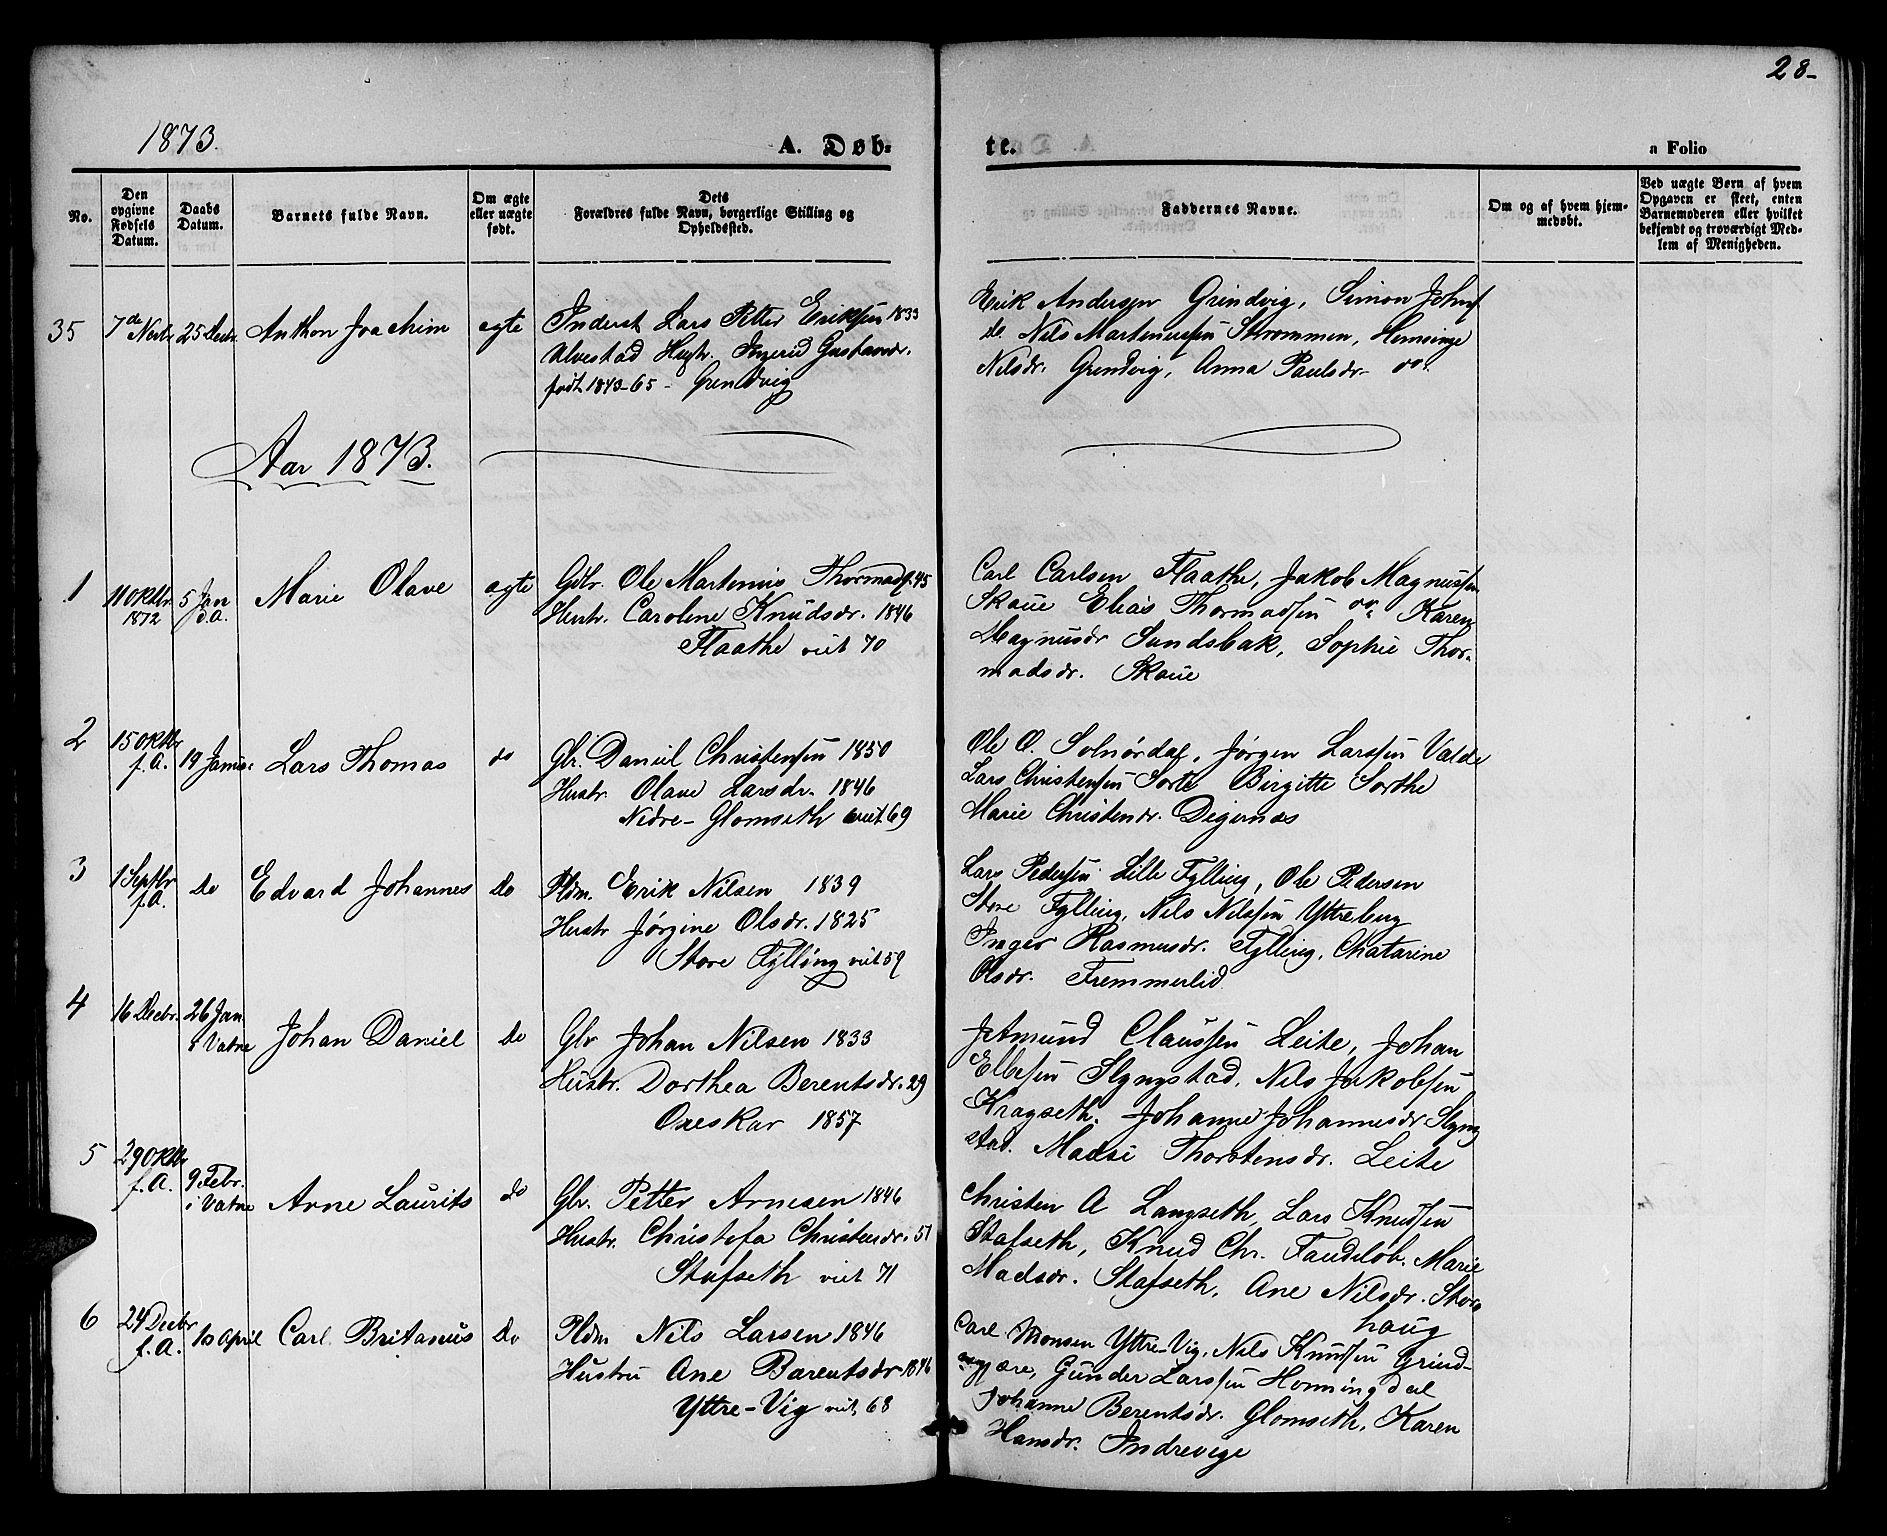 28-
1873.
A. Døb-
te.
a Folio
No.
Den opgivne Fødsels Datum.
Daabs Datum.
Barnets fulde Navn.
Om ægte eller uægte født.
Dets Forældres fulde Navn, borgerlige Stilling og Opholdssted.
Faddernes Navne.
Om og af hvem hjemmedøbt.
Ved uægte Børn af hvem Opgaven er skeet, enten Barnemoderen eller hvilket bekjendt og troværdigt Medlem af Menigheden.
35 7de Novbr 25 Decbr. Anthon Joachim ægte
Inderst Lars Petter Eriksen 1833
Ulvestad Hustr. Ingerid Gustavsdr.
født 1843-65 - Grindvig
Erik Andersen Grindvig, Simon Johns
do. Nils Martenussen Strømmen,
Nilsdr. Grindvig, Anna Paulsdr. do.
Aar 1873.
1 11 Oktbr. 1872 5 Jan d.A. Marie Olave ægte
Gbr. Ole Martenius Thormadss. 45
Hustr. Caroline Knudsdr. 1846
Flaathe viet 70
Carl Carlsen Flaathe, Jakob Magnussen
Skaue Elias Thormadsen do. Karen
Magnusdr Sundsbak, Sophie Thor-
madsdr. Skaue
2 15 Oktbr f.A. 19 Januar Lars Thomas do
Gbr. Daniel Christensen 1850
Hustr. Olave Larsdr. 1846
Nedre-Glomseth viet 69
Ole O. Solnørdal, Jørgen Larssen Valde
Lars Christensen Sorte Birgitte Sorthe
Marie Christensdr. Digernæs
3 1 Septbr f.A. Do Edvard Johannes Do
Pldm. Erik Nilsen 1839
Hustr Jørgine Olsdr. 1825
Store Fylling viet 59
Lars Pedersen Lille Fylling, Ole Pedersen
Store Fylling, Nils Nilssen Yttreberg
Inger Rasmusdr. Fylling, Chatarine
Olsdr. Fremmerlid
4 16 Decbr. 26 Jan. i Vatne Johan Daniel Do
Gbr Johan Nilsen 1833
Hustr. Dorthea Berentsdr. 29
Oxeskar 1857
Amund Claussen Leite, Johan
Ellefsen Slyngstad, Nils Jakobsen
Kragseth. Johanne Johannesdr Slyng
stad. Madsi Thorstensdr. Leite
5 29 Oktbr f.A. 9 Febr. i Vatne Arne Laurits do
Gbr. Petter Arnesen 1846
Hustr. Christofa Christensdr. 51
Stafseth viet 71
Christen A Langseth, Lars Knudsen
Stafseth, Knud Chr. Taudeløb. Marie
Madsdr. Stafseth, Ane Nilsdr. Stor
haug
6 24 Decbr f.A. 10 April Carl Britanus Do
Pldm Nils Larsen 1846
Hustru Ane Barentsdr. 1846
Yttre-Vig viet 68
Carl Monsen Yttre-Vig, Nils Knudsen Grind-
gjære, Gunder Larssen Honningdal
Johanne Berentsdr. Glomseth, Karen
Hansdr. Indrevige